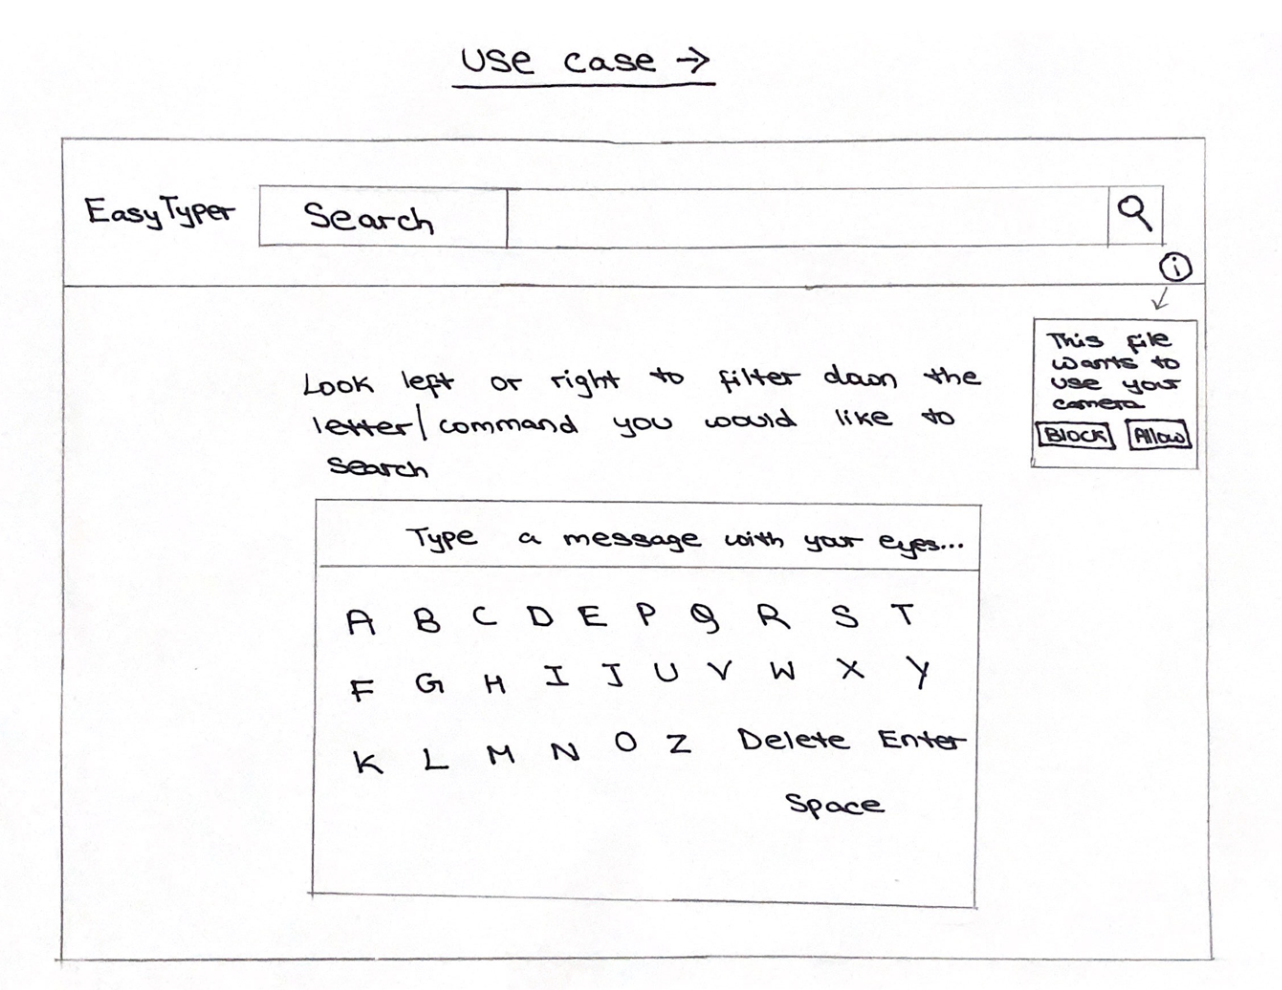 Use case →
EasyTyper Search
i
This file
wants to
use your
camera
Block Allow
Look left or right to filter down the
letter/command you would like to
search
Type a message with your eyes...
A B C D E P Q R S T
F G H I J U V W X Y
K L M N O Z Delete Enter
Space